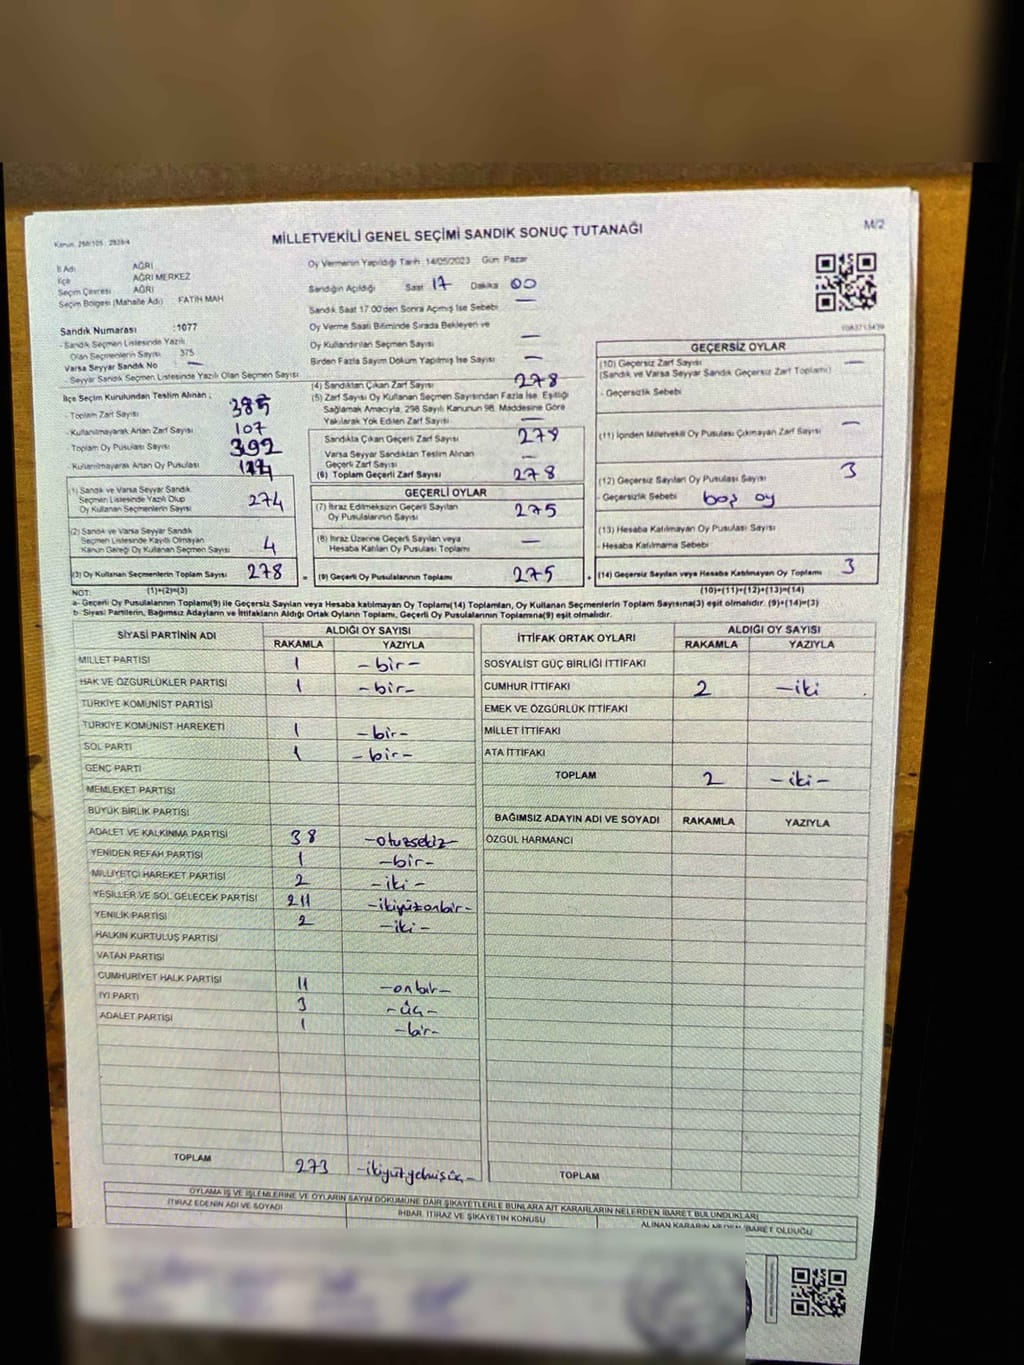 Kanun, 298/105 , 2839/4
M/2
MİLLETVEKİLİ GENEL SEÇİMİ SANDIK SONUÇ TUTANAĞI
İl Adı AĞRI
İlçe AĞRI MERKEZ
Seçim Çevresi AĞRI
Seçim Bölgesi (Mahalle Adı) FATİH MAH
Sandık Numarası :1077
- Sandık Seçmen Listesinde Yazılı
Olan Seçmenlerin Sayısı 375
Varsa Seyyar Sandık No —
- Seyyar Sandık Seçmen Listesinde Yazılı Olan Seçmen Sayısı
İlçe Seçim Kurulundan Teslim Alınan ;
- Toplam Zarf Sayısı 385
- Kullanılmayarak Artan Zarf Sayısı 107
Toplam Oy Pusulası Sayısı 392
- Kullanılmayarak Artan Oy Pusulası
(1) Sandık ve Varsa Seyyar Sandık
Seçmen Listesinde Yazılı Olup
Oy Kullanan Seçmenlerin Sayısı 274
(2) Sandık ve Varsa Seyyar Sandık
Seçmen Listesinde Kayıtlı Olmayan
Kanun Gereği Oy Kullanan Seçmen Sayısı 4
(3) Oy Kullanan Seçmenlerin Toplam Sayısı 278
Oy Vermenin Yapıldığı Tarih :14/05/2023 Gün: Pazar
Sandığın Açıldığı Saat 17 Dakika 00
Sandık Saat 17:00'den Sonra Açılmış İse Sebebi —
Oy Verme Saati Bitiminde Sırada Bekleyen ve
Oy Kullandırılan Seçmen Sayısı —
Birden Fazla Sayım Döküm Yapılmış İse Sayısı —
(4) Sandıktan Çıkan Zarf Sayısı 278
(5) Zarf Sayısı Oy Kullanan Seçmen Sayısından Fazla İse, Eşitliği
Sağlamak Amacıyla, 298 Sayılı Kanunun 98. Maddesine Göre
Yakılarak Yok Edilen Zarf Sayısı —
Sandıkta Çıkan Geçerli Zarf Sayısı 278
Varsa Seyyar Sandıktan Teslim Alınan
Geçerli Zarf Sayısı —
(6) Toplam Geçerli Zarf Sayısı 278
GEÇERLİ OYLAR
(7) İtiraz Edilmeksizin Geçerli Sayılan
Oy Pusulalarının Sayısı 275
(8) İtiraz Üzerine Geçerli Sayılan veya
Hesaba Katılan Oy Pusulası Toplamı —
= (9) Geçerli Oy Pusulalarının Toplamı 275
GEÇERSİZ OYLAR
(10) Geçersiz Zarf Sayısı —
(Sandık ve Varsa Seyyar Sandık Geçersiz Zarf Toplamı)
- Geçersizlik Sebebi
(11) İçinden Milletvekili Oy Pusulası Çıkmayan Zarf Sayısı —
(12) Geçersiz Sayılan Oy Pusulası Sayısı 3
- Geçersizlik Sebebi boş oy
(13) Hesaba Katılmayan Oy Pusulası Sayısı
- Hesaba Katılmama Sebebi
+ (14) Geçersiz Sayılan veya Hesaba Katılmayan Oy Toplamı 3
NOT: (1)+(2)=(3) (10)+(11)+(12)+(13)=(14)
a- Geçerli Oy Pusulalarının Toplamı(9) ile Geçersiz Sayılan veya Hesaba katılmayan Oy Toplamı(14) Toplamları, Oy Kullanan Seçmenlerin Toplam Sayısına(3) eşit olmalıdır. (9)+(14)=(3)
b- Siyasi Partilerin, Bağımsız Adayların ve İttifakların Aldığı Ortak Oyların Toplamı, Geçerli Oy Pusulalarının Toplamına(9) eşit olmalıdır.
SİYASİ PARTİNİN ADI ALDIĞI OY SAYISI
RAKAMLA YAZIYLA
MİLLET PARTİSİ 1 -bir-
HAK VE ÖZGÜRLÜKLER PARTİSİ 1 -bir-
TÜRKİYE KOMÜNİST PARTİSİ
TÜRKİYE KOMÜNİST HAREKETİ 1 -bir-
SOL PARTİ 1 -bir-
GENÇ PARTİ
MEMLEKET PARTİSİ
BÜYÜK BİRLİK PARTİSİ
ADALET VE KALKINMA PARTİSİ 38 -otuzsekiz-
YENİDEN REFAH PARTİSİ 1 -bir-
MİLLİYETÇİ HAREKET PARTİSİ 2 -iki-
YEŞİLLER VE SOL GELECEK PARTİSİ 211 -ikiyüzonbir-
YENİLİK PARTİSİ 2 -iki-
HALKIN KURTULUŞ PARTİSİ
VATAN PARTİSİ
CUMHURİYET HALK PARTİSİ 11 -onbir-
İYİ PARTİ 3 -üç-
ADALET PARTİSİ 1 -bir-
TOPLAM 273 -ikiyüzyetmişüç-
İTTİFAK ORTAK OYLARI ALDIĞI OY SAYISI
RAKAMLA YAZIYLA
SOSYALİST GÜÇ BİRLİĞİ İTTİFAKI
CUMHUR İTTİFAKI 2 -iki
EMEK VE ÖZGÜRLÜK İTTİFAKI
MİLLET İTTİFAKI
ATA İTTİFAKI
TOPLAM 2 -iki-
BAĞIMSIZ ADAYIN ADI VE SOYADI RAKAMLA YAZIYLA
ÖZGÜL HARMANCI
TOPLAM
OYLAMA İŞ VE İŞLEMLERİNE VE OYLARIN SAYIM DÖKÜMÜNE DAİR ŞİKAYETLERLE BUNLARA AİT KARARLARIN NELERDEN İBARET BULUNDUKLARI
İTİRAZ EDENİN ADI VE SOYADI İHBAR, İTİRAZ VE ŞİKAYETİN KONUSU ALINAN KARARIN NEDEN İBARET OLDUĞU